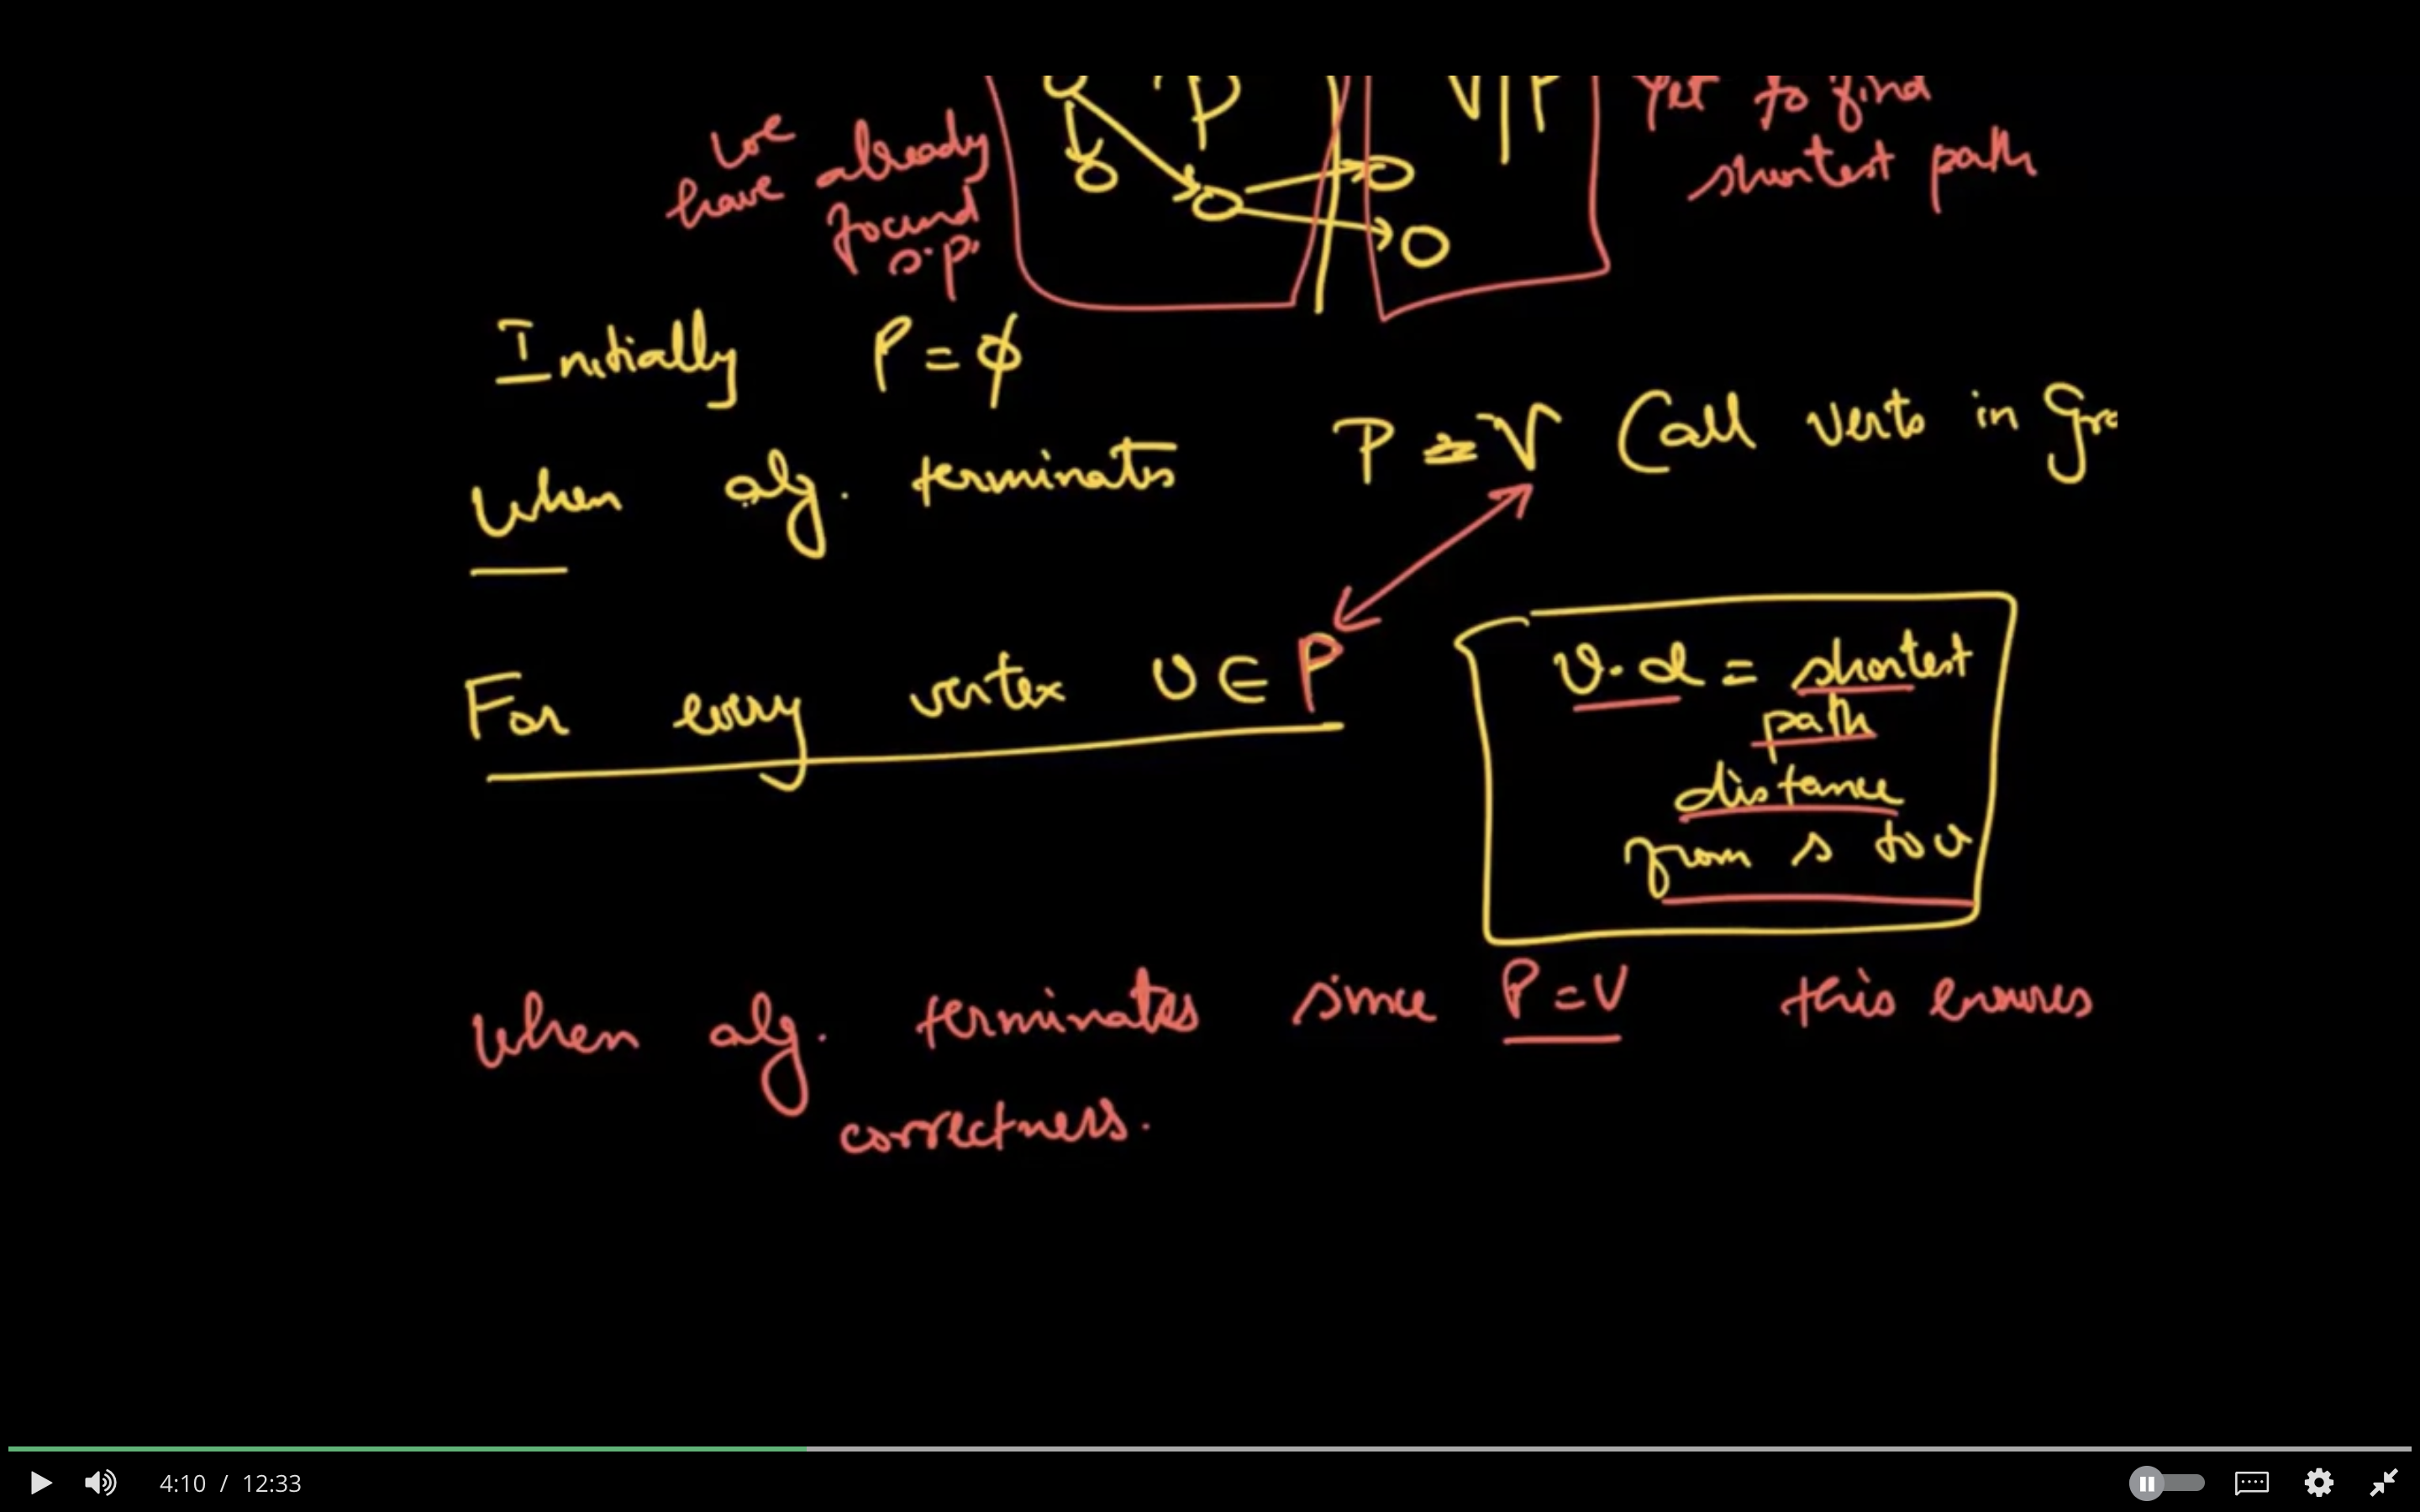 P V|P yet to find
we have already found s.p. shortest path
Initially P = ϕ
When alg. terminates P = V (all verts in gra
For every vertex v ∈ P
v.d = shortest
path
distance
from s to v
When alg. terminates since P = V this ensures
correctness.
4:10 / 12:33